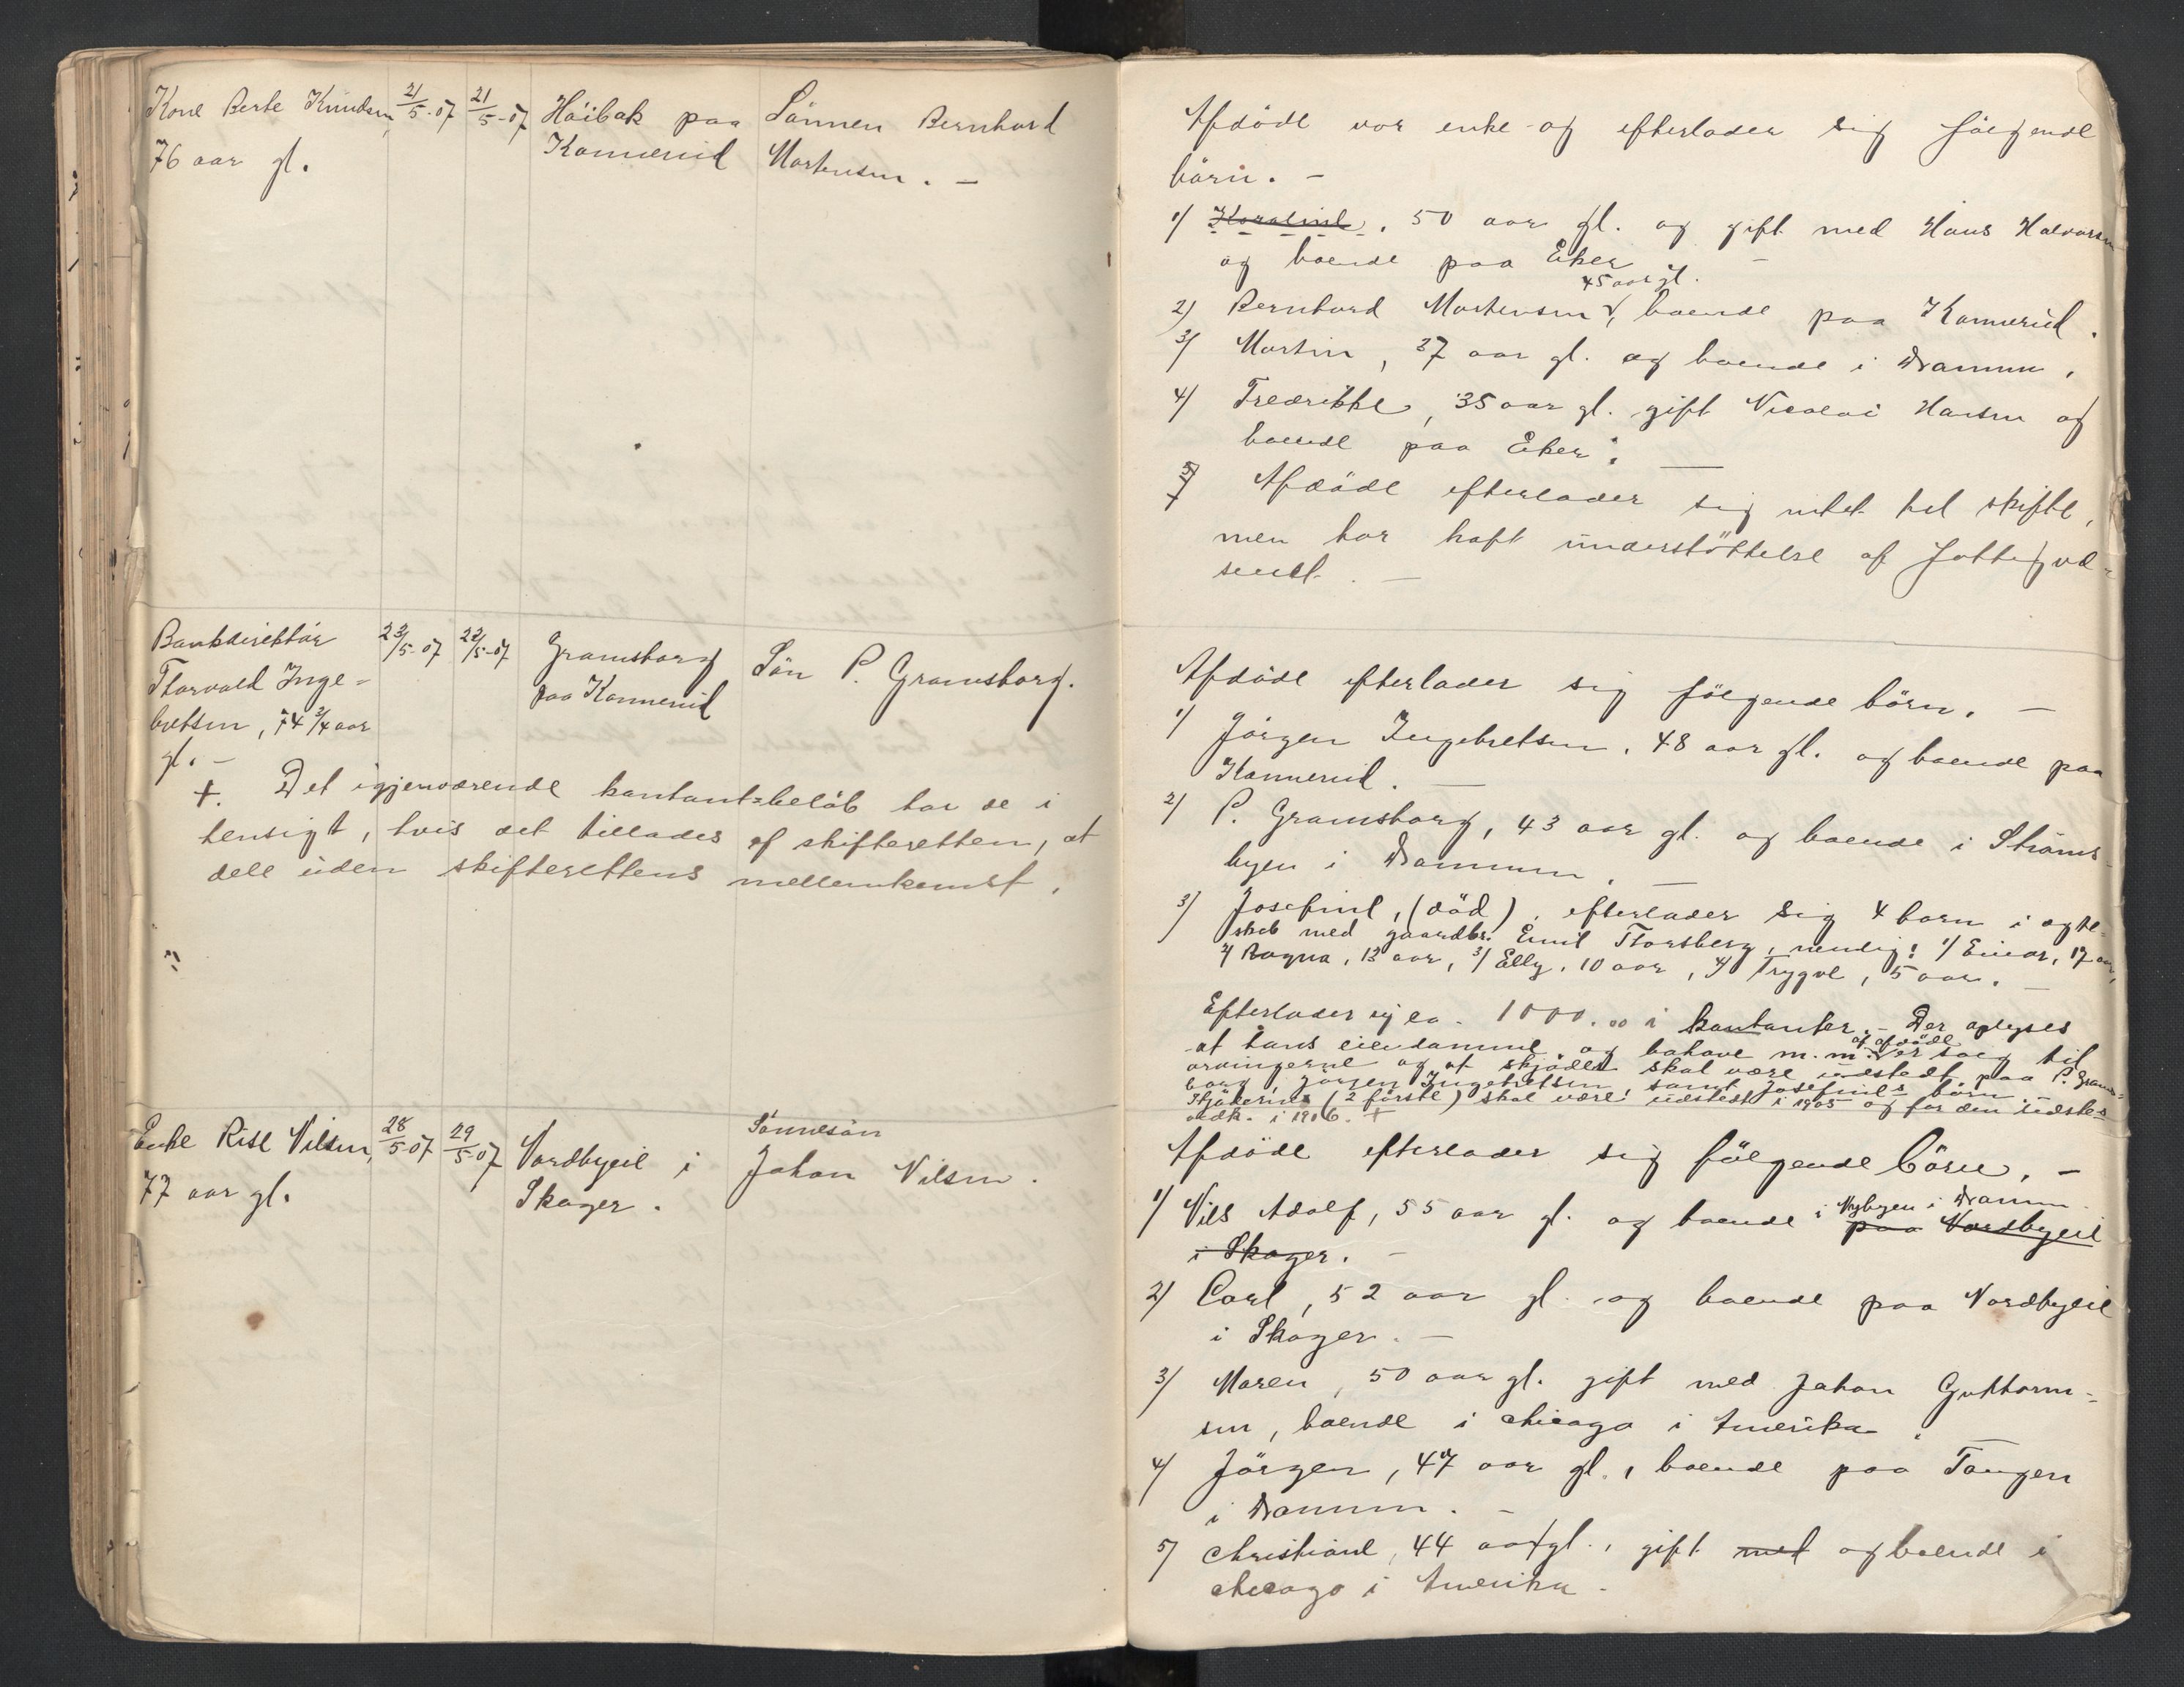 Kone Berte Knudsen, 21/5-07 21/5-07 Höibak paa Sönnen Bernhard
76 aar gl. Konnerud Mortensen. -
Bankdirektör 22/5-07 22/5-07 Gramsborg Sön P. Gramsborg.
Thorvald Inge- paa Konnerud
bretsen, 74 3/4 aar
gl. -
+. Det igjenværende kontant-beløb har de i
hensigt, hvis det tillades af skifteretten, at
dele uden skifterettens mellemkomst.
Enke Rise Nilsen, 28/5-07 29/5-07 Nordbyeie i Sönnesön
77 aar gl. Skoger. Johan Nilsen.
Afdöde var enke og efterlader sig fölgende
börn. -
1/ Karoline, 50 aar gl. og gift med Hans Halvorsen
og boende paa Eker -
45 aar gl.
2/ Bernhard Mortensen, boende paa Konnerud.
3/ Martin, 37 aar gl. og boende i Drammen,
4/ Fredrikke, 35 aar gl. gift Nicolai Hansen og
boende paa Eker. -
5/ Afdöde efterlader sig intet til skifte,
men har haft understöttelse af Fattigvæ-
senet. -
Afdöde efterlader sig fölgende börn. -
1/ Jörgen Ingebretsen, 48 aar gl. og boende paa
Konnerud. -
2/ P. Gramsborg, 43 aar gl. og boende i Ströms-
byen i Drammen. -
3/ Josefine, (död), efterlader sig 4 barn i ægte-
skab med gaardbr. Emil Thorsberg, nemlig: 1/ Einar, 17 aar,
2/ Ragna, 13 aar, 3/ Elly, 10 aar, 4/ Trygve, 5 aar. -
Efterlader sig ca. 1000.00 i kontanter. - Der oplyses
at hans eiendomme og bohave m.m. af afdöde er solg til
arvingerne og at skjödet skal være udstedt paa P. Grams-
borg, Jörgen Ingebretsen, samt Josefines börn
Skjöderne (2 förste) skal være udstedt i 1905 og for den sidste
vedk. i 1906. +
Afdöde efterlader sig fölgende börn. -
1/ Nils Adolf, 55 aar gl. og boende i Nybyen i Dramm. paa Nordbyeie
i Skoger. -
2/ Carl, 52 aar gl. og boende paa Nordbyeie
i Skoger. -
3/ Maren, 50 aar gl. gift med Johan Guttorm-
sen, boende i Chicago i Amerika. -
4/ Jörgen, 47 aar gl., boende paa Tangen
i Drammen. -
5/ Christiane, 44 aar gl., gift med og boende i
Chicago i Amerika -